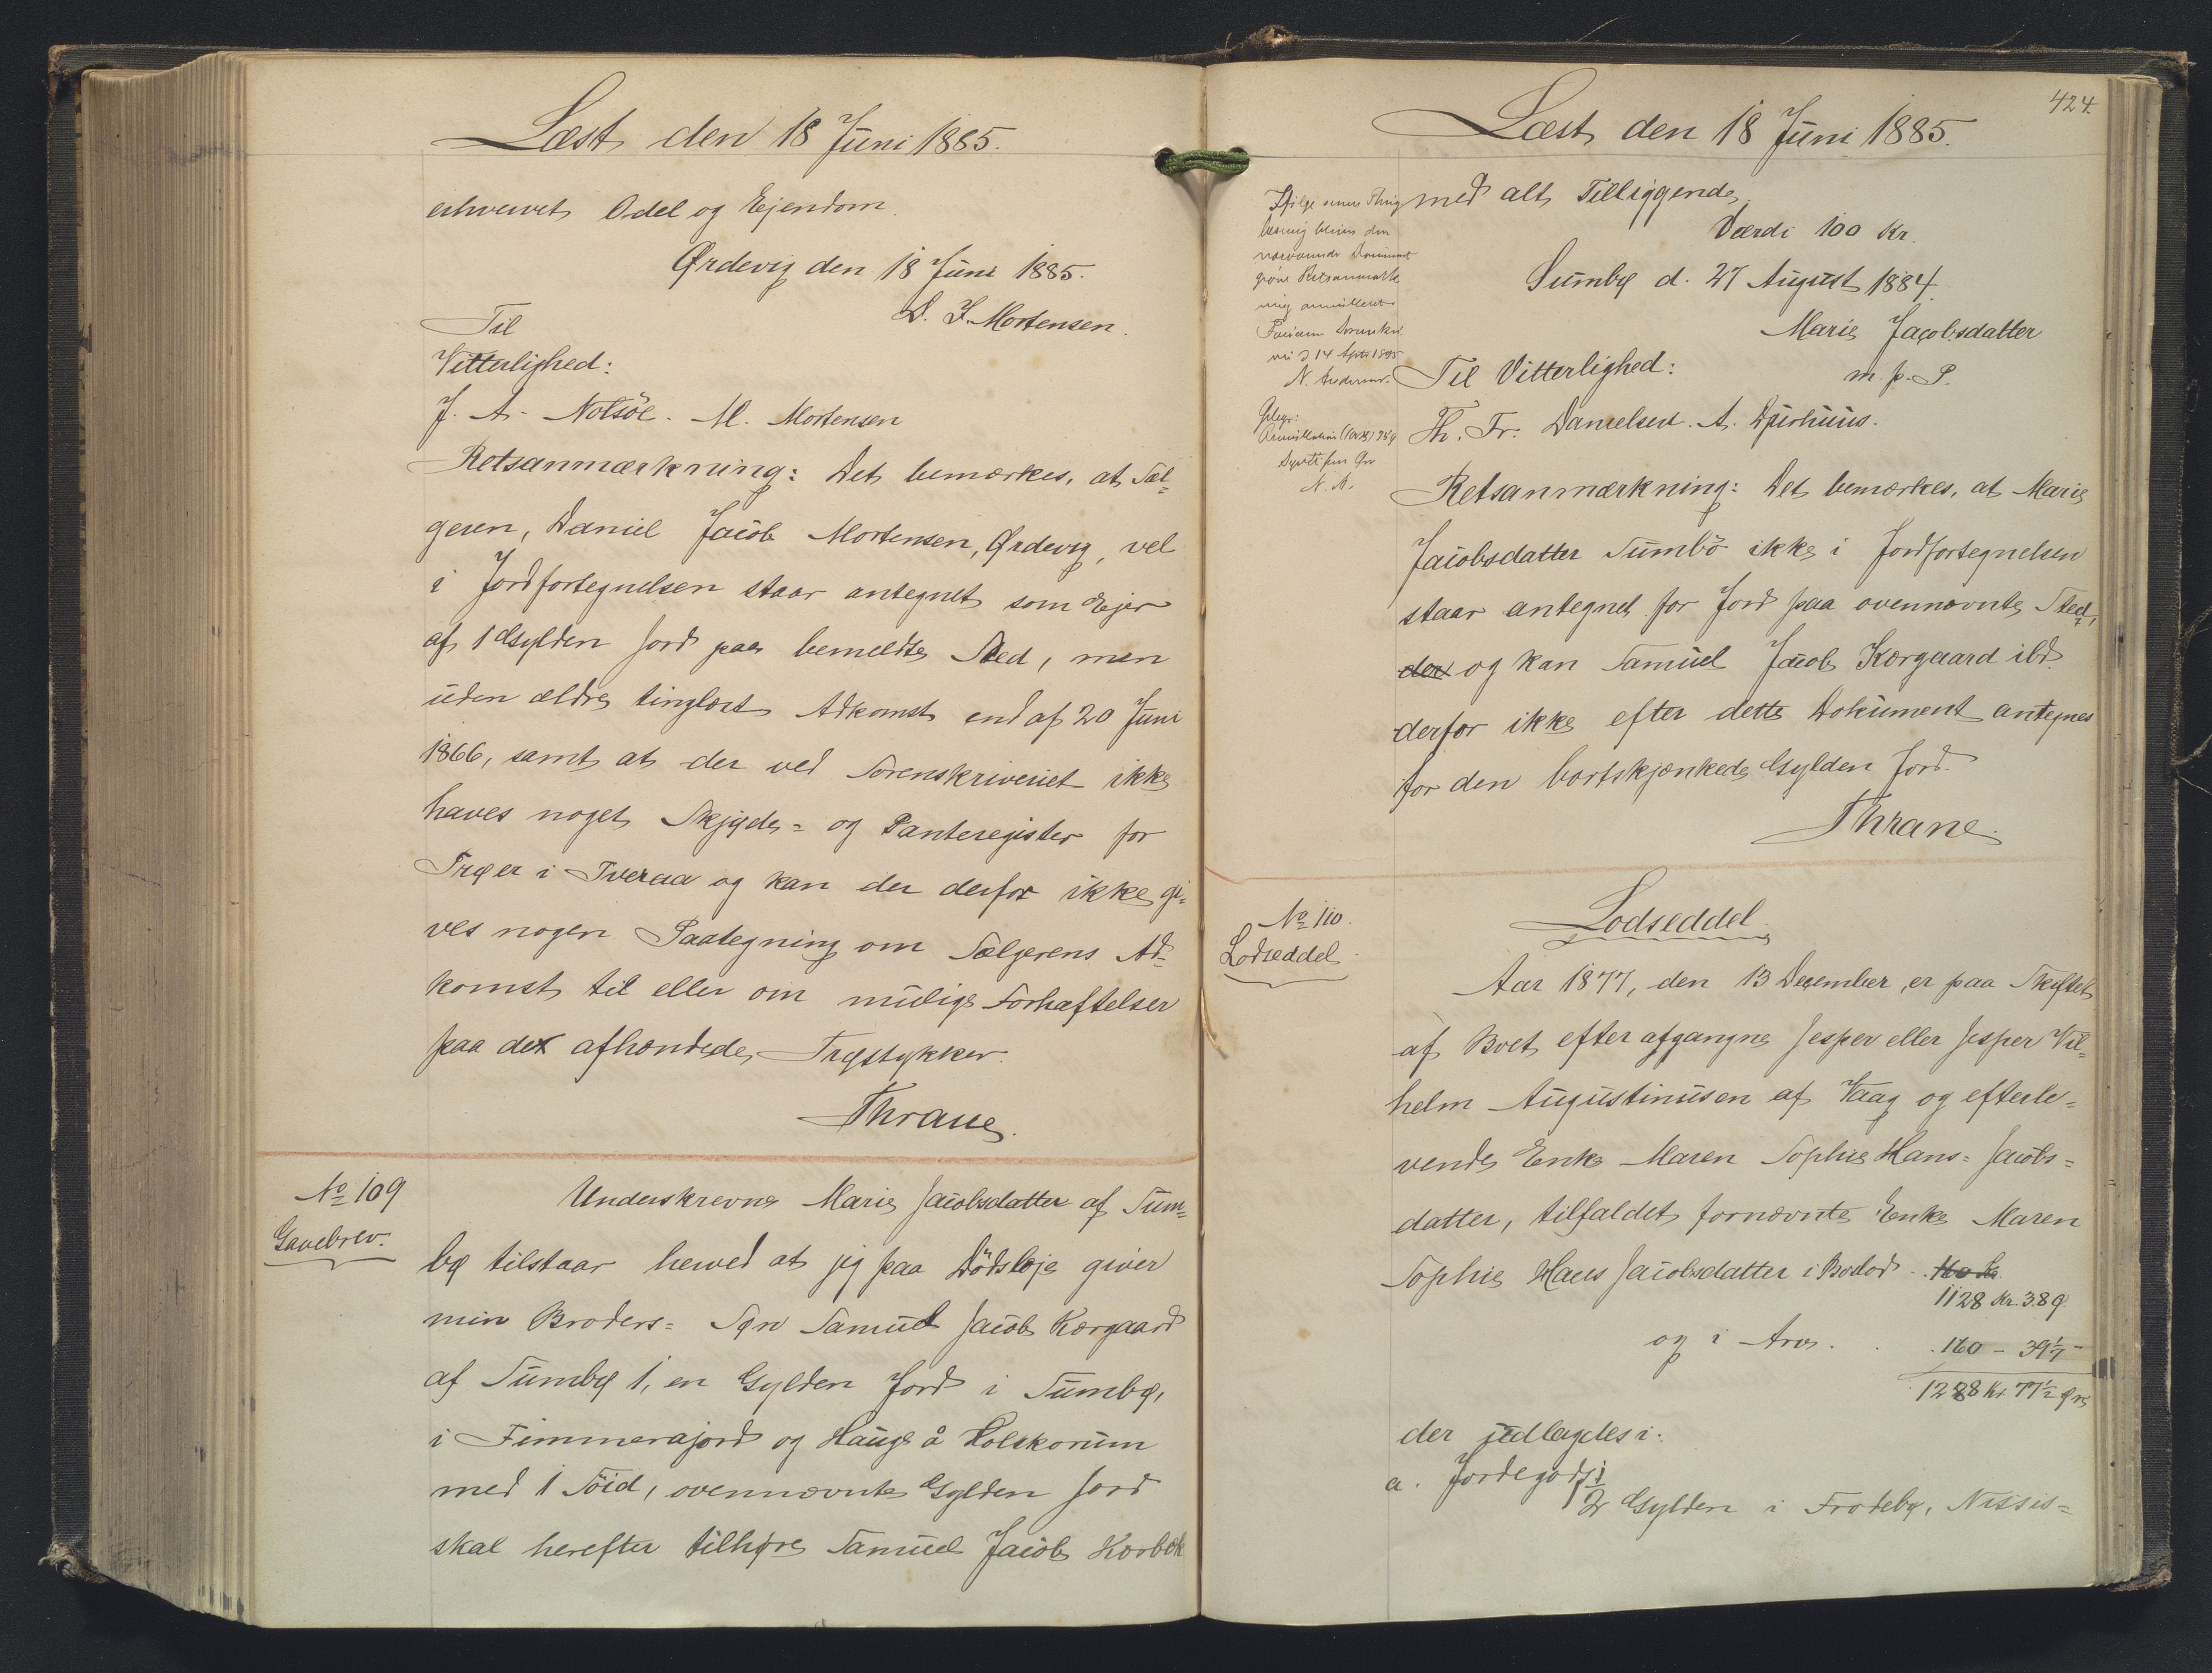 Læst den 18 Juni 1885.
erhvervet Odel og Ejendom.
Ørdevig den 18 Juni 1885.
D. J. Mortensen.
Til
Vitterlighed:
J. A. Nolsöe. M. Mortensen
Retsanmærkning: Det bemærkes, at Sæl=
geren, Daniel Jacob Mortensen, Ørdevig, vel
i Jordfortegnelsen staar antegnet som Ejer
af 1 Gylden Jord paa bemeldte Sted, men
uden ældre tinglæst Adkomst end af 20 Juni
1866, samt at der ved Sorenskriveriet ikke
haves noget Skjøde= og Panteregister for
Trøer i Tveraa og kan der derfor ikke gi=
ves nogen Paategning om Sælgerens Ad=
komst til eller om mulige Forhæftelser
paa det afhændede Trøstykker.
Thrane.
No 109
Gavebrev.
Underskrevne Marie Jacobsdatter af Sum=
bø tilstaar herved at jeg paa Dödsleje giver
min Broders= Søn Samuel Jacob Kærgaard
af Sumbø 1, en Gylden Jord i Sumbø,
i Fimmerajord og Hauge å Holskorum
med 1 Söid, ovennævnte Gylden Jord
skal herefter tilhøre Samuel Jacob Kærbæk
424.
Læst den 18 Juni 1885.
med alt Tilliggende
Værdi 100 Kr.
Sumbø d. 27 August 1884.
Marie Jacobsdatter
m. p. P.
Til Vitterlighed:
Th. Fr. Danielsen. A. Djurhuus.
Ifølge senere Thing
læsning bliver den
nærværende Dokument
givne Retsanmærk
ning annulleret
14 April 1895
N. Andersen.
Gebyr:
N. A.
Retsanmærkning: Det bemærkes, at Marie
Jacobsdatter Sumbö ikke i Jordfortegnelsen
staar antegnet for Jord paa ovennævnte Sted,
der og kan Samuel Jacob Kærgaard ibd.
derfor ikke efter dette Dokument antegnes
for den bortskjænkede Gylden Jord.
Thrane.
No 110.
Lodseddel
Lodseddel.
Aar 1877, den 13 December, er paa Skiftet
af Boet efter afgangne Jesper eller Jesper Vil=
helm Augustinusen af Vaag og efterle=
vende Enke Maren Sophie Hans= Jacobs=
datter, tilfaldet fornævnte Enke Maren
Sophie Hans Jacobsdatter i Boslod . . 160 Kr.
1128 Kr. 38 Ø.
og i Arv. . . 160 - 39 1/7 -
1288 Kr. 77 1/2 Øre
der udlagdes i:
a. Jordegods:
1/2 Gylden i Frodebø, Nissis=